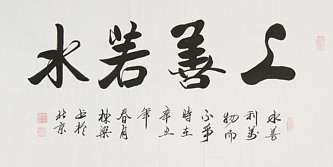 上善若水
水善
利萬
物而
不爭
時在
辛丑
年
春月
棟梁
书於
北京